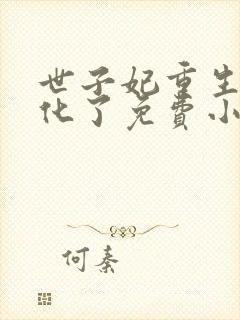 世子妃重生
化了免费小
何秦